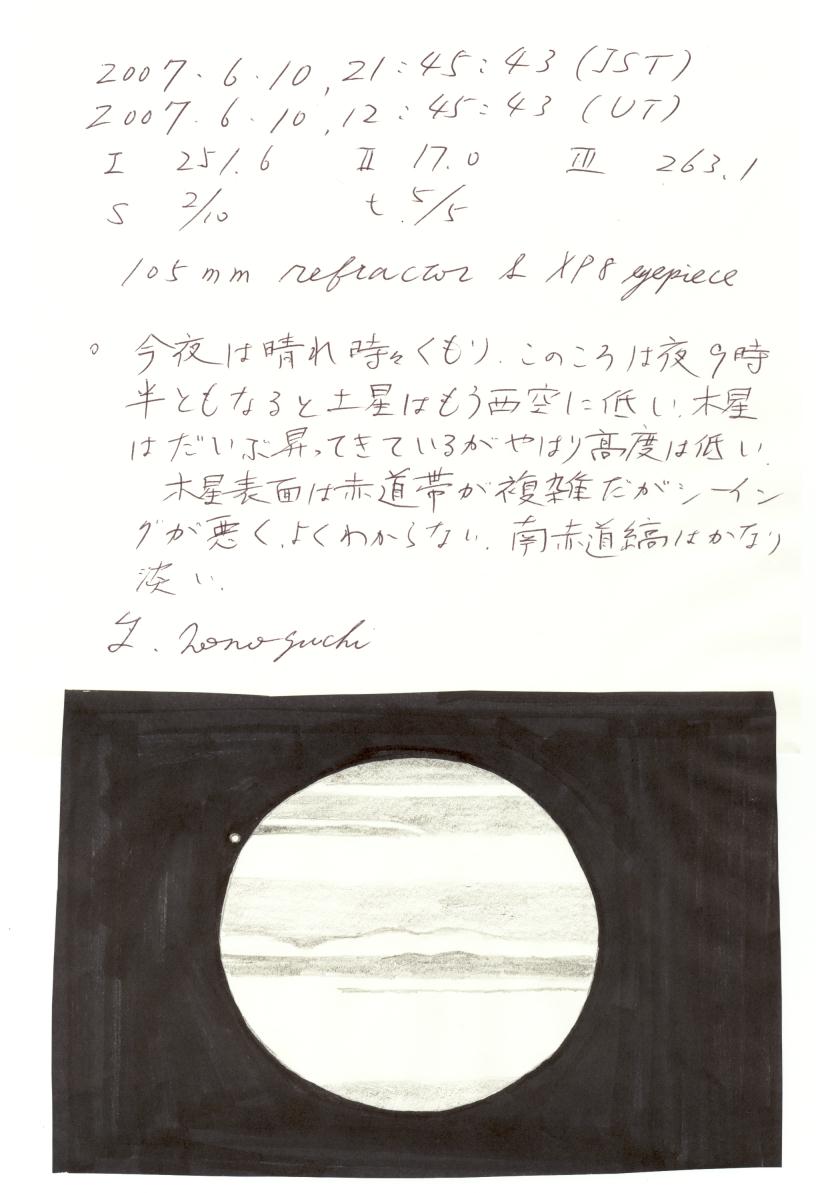 2007.6.10, 21:45:43 (JST)
2007.6.10, 12:45:43 (UT)
I 251.6 II 17.0 III 263.1
S 2/10 t 5/5
105mm refractor & XP8 eyepiece
○ 今夜は晴れ時々くもり.このころは夜9時
半ともなると土星はもう西空に低い.木星
はだいぶ昇ってきているがやはり高度は低い.
木星表面は赤道帯が複雑だがシーイン
グが悪く,よくわからない.南赤道縞はかなり
淡い.
Y. Zonoguchi